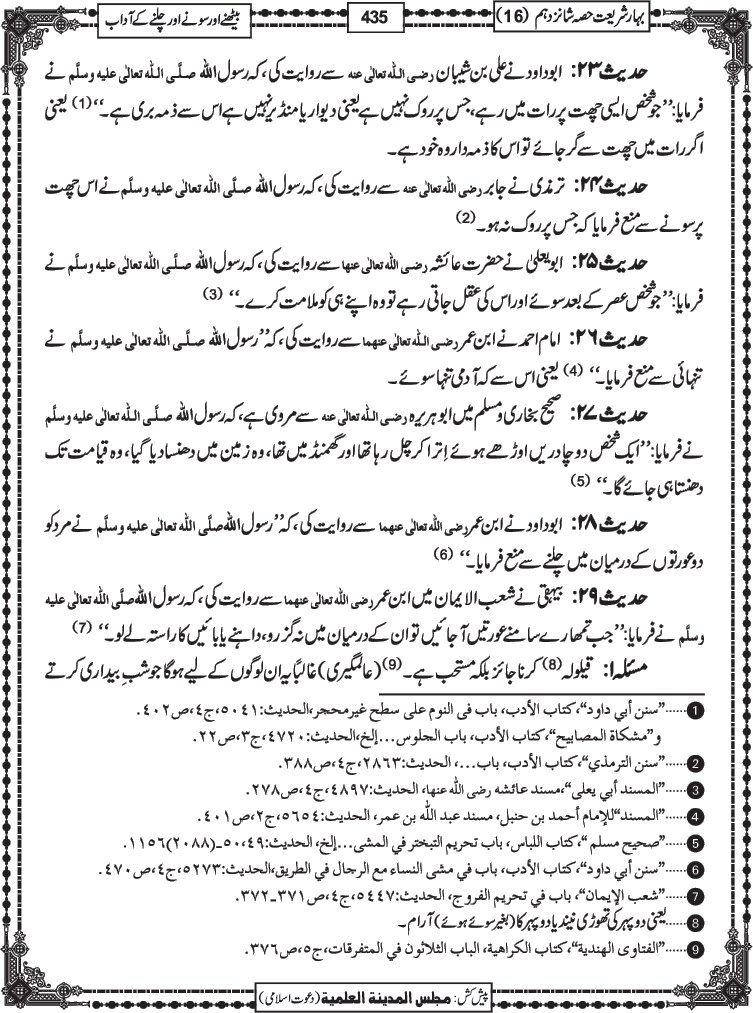 بہارِشریعت حصہ شانزدہم (16)
435
بیٹھنے اور سونے اور چلنے کے آداب
حدیث ۲۳: ابوداود نے علی بن شیبان رضی اللہ تعالٰی عنہ سے روایت کی، کہ رسول اللہ صلَّی اللہ تعالٰی علیہ وسلَّم نے
فرمایا: ’’جو شخص ایسی چھت پر رات میں رہے، جس پر روک نہیں ہے یعنی دیوار یا منڈیر نہیں ہے اس سے ذمہ بری ہے۔‘‘(1) یعنی
اگر رات میں چھت سے گر جائے تو اس کا ذمہ دار وہ خود ہے۔
حدیث ۲۴: ترمذی نے جابر رضی اللہ تعالٰی عنہ سے روایت کی، کہ رسول اللہ صلَّی اللہ تعالٰی علیہ وسلَّم نے اس چھت
پر سونے سے منع فرمایا کہ جس پر روک نہ ہو۔(2)
حدیث ۲۵: ابویعلیٰ نے حضرت عائشہ رضی اللہ تعالٰی عنھا سے روایت کی، کہ رسول اللہ صلَّی اللہ تعالٰی علیہ وسلَّم نے
فرمایا: ’’جو شخص عصر کے بعد سوئے اور اس کی عقل جاتی رہے تو وہ اپنے ہی کو ملامت کرے۔‘‘(3)
حدیث ۲۶: امام احمد نے ابن عمر رضی اللہ تعالٰی عنھما سے روایت کی، کہ ’’رسول اللہ صلَّی اللہ تعالٰی علیہ وسلَّم نے
تنہائی سے منع فرمایا۔‘‘(4) یعنی اس سے کہ آدمی تنہا سوئے۔
حدیث ۲۷: صحیح بخاری و مسلم میں ابوہریرہ رضی اللہ تعالٰی عنہ سے مروی ہے، کہ رسول اللہ صلَّی اللہ تعالٰی علیہ وسلَّم
نے فرمایا: ’’ایک شخص دو چادریں اوڑھے ہوئے اِترا کر چل رہا تھا اور گھمنڈ میں تھا، وہ زمین میں دھنسا دیا گیا، وہ قیامت تک
دھنستا ہی جائے گا۔‘‘(5)
حدیث ۲۸: ابوداود نے ابن عمر رضی اللہ تعالٰی عنھما سے روایت کی، کہ ’’رسول اللہ صلَّی اللہ تعالٰی علیہ وسلَّم نے مرد کو
دو عورتوں کے درمیان میں چلنے سے منع فرمایا۔‘‘(6)
حدیث ۲۹: بیہقی نے شعب الایمان میں ابن عمر رضی اللہ تعالٰی عنھما سے روایت کی، کہ رسول اللہ صلَّی اللہ تعالٰی علیہ
وسلَّم نے فرمایا: ’’جب تمھارے سامنے عورتیں آجائیں تو ان کے درمیان میں نہ گزرو، داہنے یا بائیں کا راستہ لے لو۔‘‘(7)
مسئلہ ۱: قیلولہ(8) کرنا جائز بلکہ مستحب ہے۔(9) (عالمگیری) غالباً یہ ان لوگوں کے لیے ہوگا جو شب بیداری کرتے
1......’’سنن أبي داود‘‘، کتاب الأدب، باب فی النوم علی سطح غیرمحجر، الحدیث: ۵۰۴۱، ج٤، ص۴۰۲.
و’’مشکاة المصابیح‘‘، کتاب الأدب، باب الجلوس...إلخ، الحدیث: ۴۷۲۰، ج۳، ص۲۲.
2......’’سنن الترمذي‘‘، کتاب الأدب، باب...، الحدیث: ۲۸۶۳، ج٤، ص۳۸۸.
3......’’المسند أبي یعلی‘‘، مسند عائشه رضی اللہ عنها، الحدیث: ۴۸۹۷، ج٤، ص۲۷۸.
4......’’المسند‘‘ للإمام أحمد بن حنبل، مسند عبد اللہ بن عمر، الحدیث: ۵۶۵۴، ج۲، ص۴۰۱.
5......’’صحیح مسلم‘‘، کتاب اللباس، باب تحریم التبختر في المشی...إلخ، الحدیث: ۴۹،۵۰ـ(۲۰۸۸)۱۱۵۶.
6......’’سنن أبي داود‘‘، کتاب الأدب، باب في مشی النساء مع الرجال في الطریق، الحدیث: ۵۲۷۳، ج٤، ص۴۷۰.
7......’’شعب الإیمان‘‘، باب في تحریم الفروج، الحدیث: ۵۴۴۷، ج٤، ص۳۷۱ـ۳۷۲.
8......یعنی دوپہر کی تھوڑی نیند یا دوپہر کا (بغیر سوئے ہوئے) آرام۔
9......’’الفتاوی الهندیة‘‘، کتاب الکراهیة، الباب الثلاثون في المتفرقات، ج۵، ص۳۷۶.
پیش کش: مجلس المدینة العلمیة (دعوتِ اسلامی)